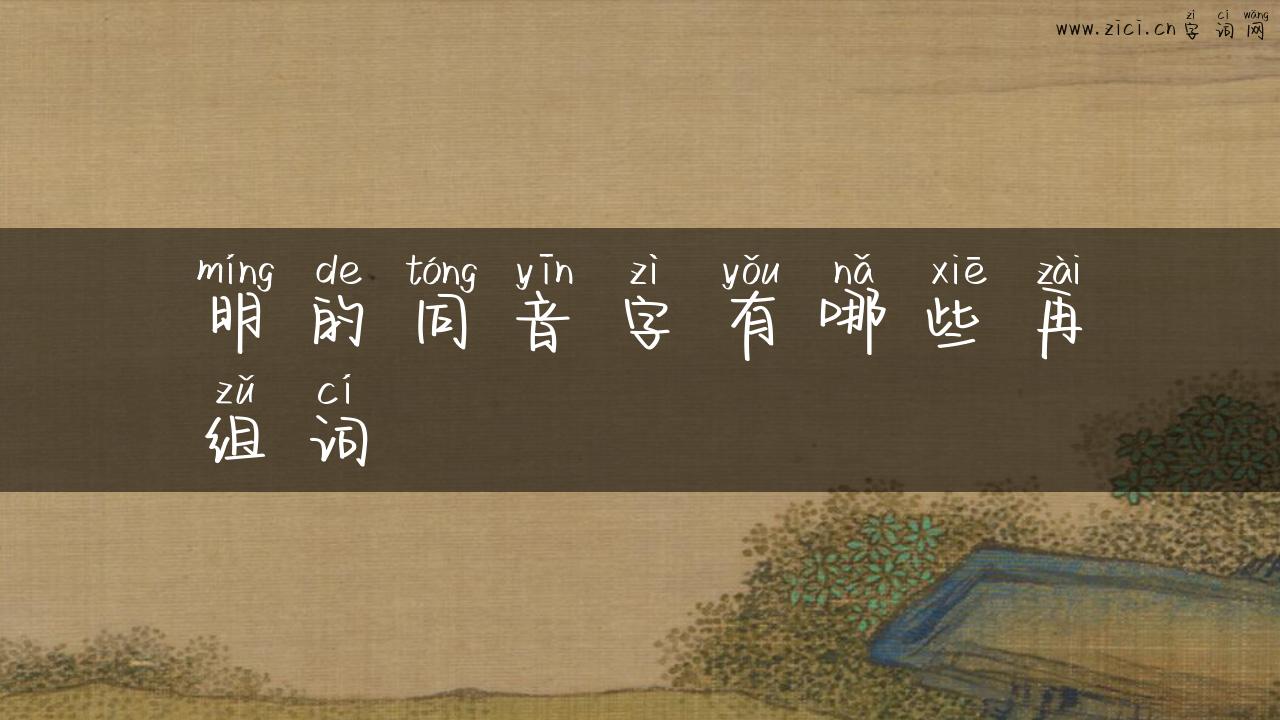 zì cí wǎng
www.zici.cn字词网
míng de tóng yīn zì yǒu nǎ xiē zài
明的同音字有哪些再
zǔ cí
组词